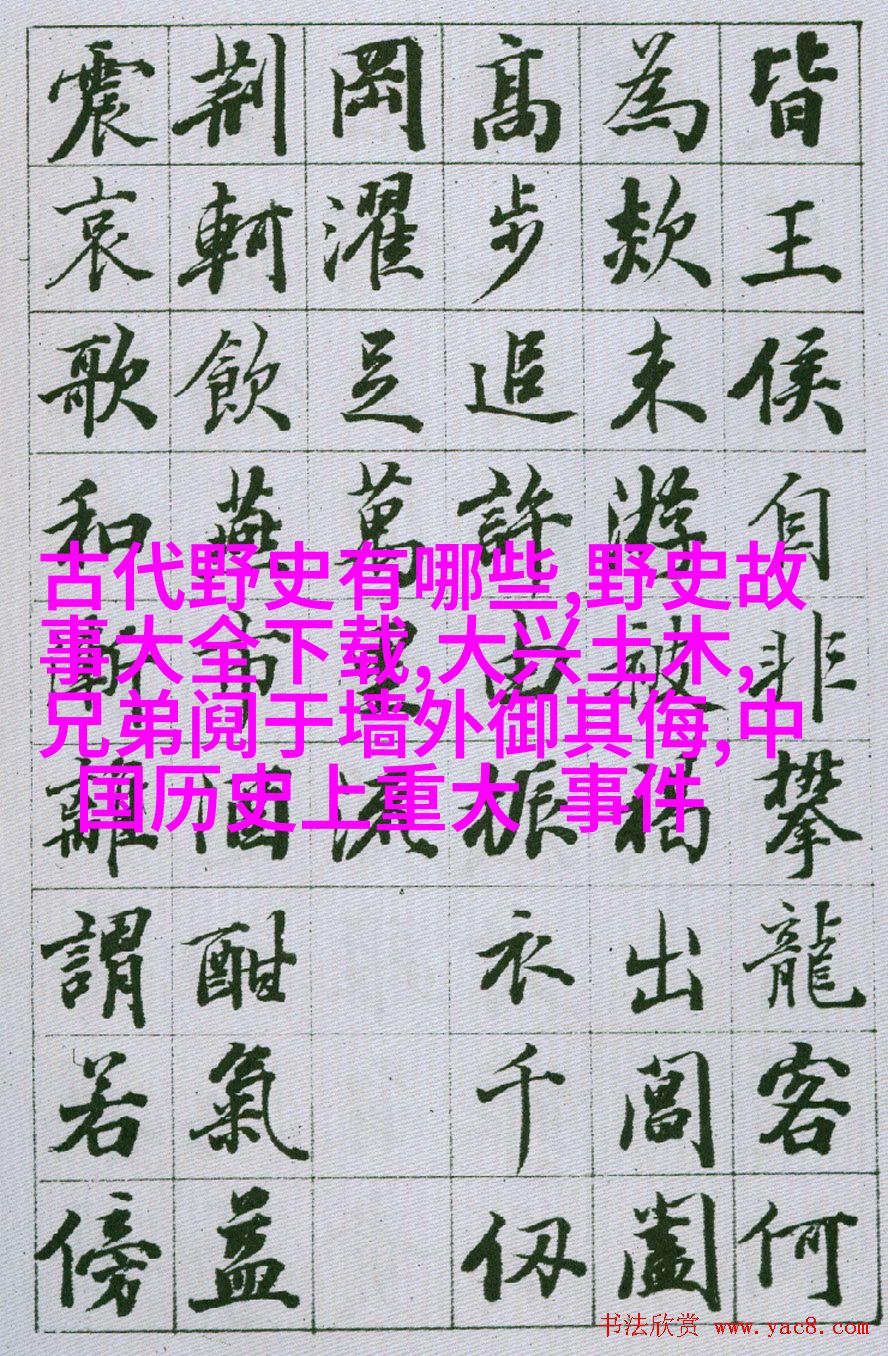 皆王侯自非攀龍客何
為欻来游被褐出閶闔
高步追許由振衣千仞
岡濯足萬里流
荆軻飲燕市酒酣氣益
震哀歌和漸離謂若傍
古代野史有哪些,野史故
事大全下载,大兴土木,
兄弟阋于墙外御其侮,中
国历史上重大 事件
书法欣赏 www.yac8.com